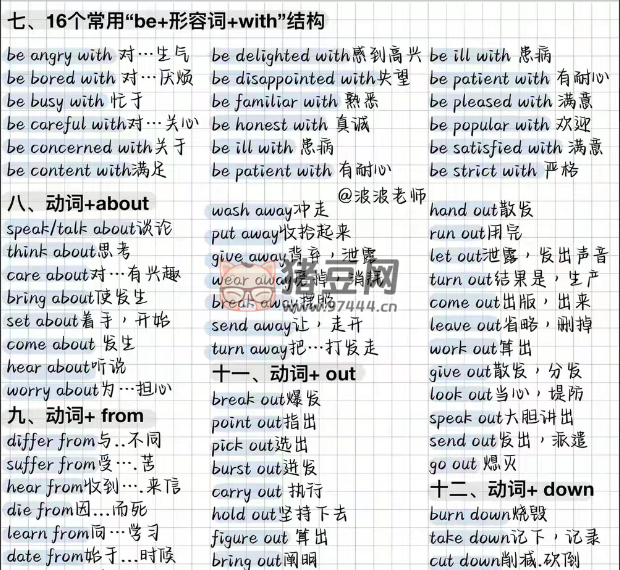 七、16个常用“be+形容词+with”结构
be angry with 对…生气
be bored with 对…厌烦
be busy with 忙于
be careful with对…关心
be concerned with关于
be content with满足
be delighted with感到高兴
be disappointed with失望
be familiar with 熟悉
be honest with 真诚
be ill with 患病
be patient with 有耐心
be ill with 患病
be patient with 有耐心
be pleased with 满意
be popular with 欢迎
be satisfied with 满意
be strict with 严格
@波波老师
八、动词+about
speak/talk about谈论
think about思考
care about对…有兴趣
bring about使发生
set about着手，开始
come about 发生
hear about听说
worry about为…担心
九、动词+ from
differ from与..不同
suffer from受….苦
hear from收到….来信
die from因…而死
learn from向…学习
date from始于…时候
wash away冲走
put away收拾起来
give away背弃，泄露
wear away
break away
send away让，走开
turn away把…打发走
猪豆网
www.97444.cn
十一、动词+ out
break out爆发
point out指出
pick out选出
burst out迸发
carry out 执行
hold out坚持下去
figure out 算出
bring out阐明
hand out散发
run out用完
let out泄露，发出声音
turn out结果是，生产
come out出版，出来
leave out省略，删掉
work out算出
give out散发，分发
look out当心，堤防
speak out大胆讲出
send out发出，派遣
go out 熄灭
十二、动词+ down
burn down烧毁
take down记下，记录
cut down削减.砍倒